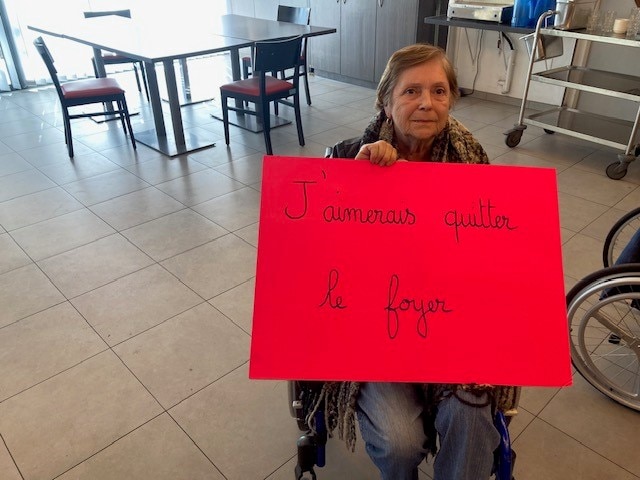 J'aimerais quitter
le foyer